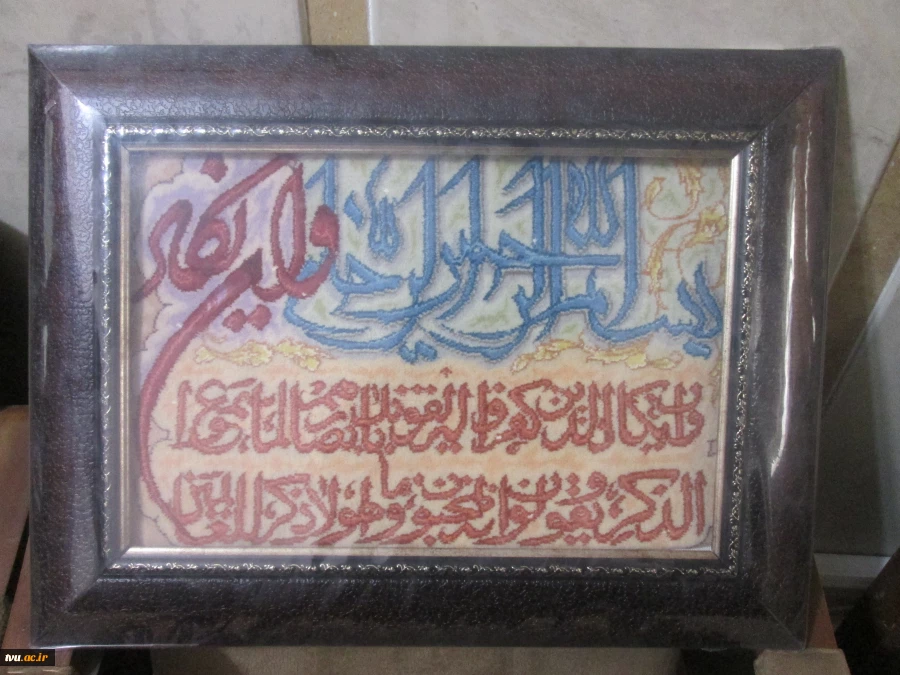 بسم الله الرحمن الرحیم
وان یکاد
وان یکاد الذین کفروا لیزلقونک بابصارهم لما سمعوا
الذکر و یقولون انه لمجنون و ما هو الا ذکر للعالمین
tvu.ac.ir